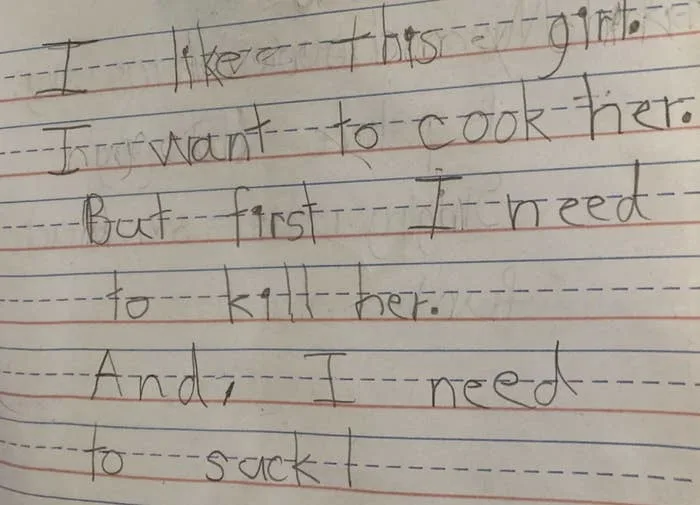 I like this girl.
I want to cook her.
But first I need
to kill her.
And, I need
to suck